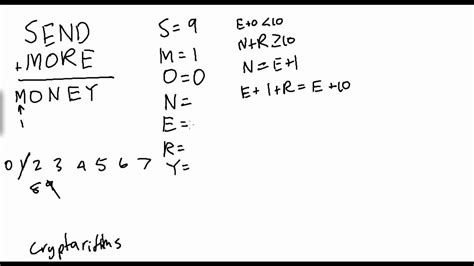 SEND
+MORE
MONEY
1
S=9
M=1
O=0
N=
E=
R=
Y=
E+0<10
N+R≥10
N=E+1
E+1+R=E+10
0 1 2 3 4 5 6 7
8 9
Cryptarithms